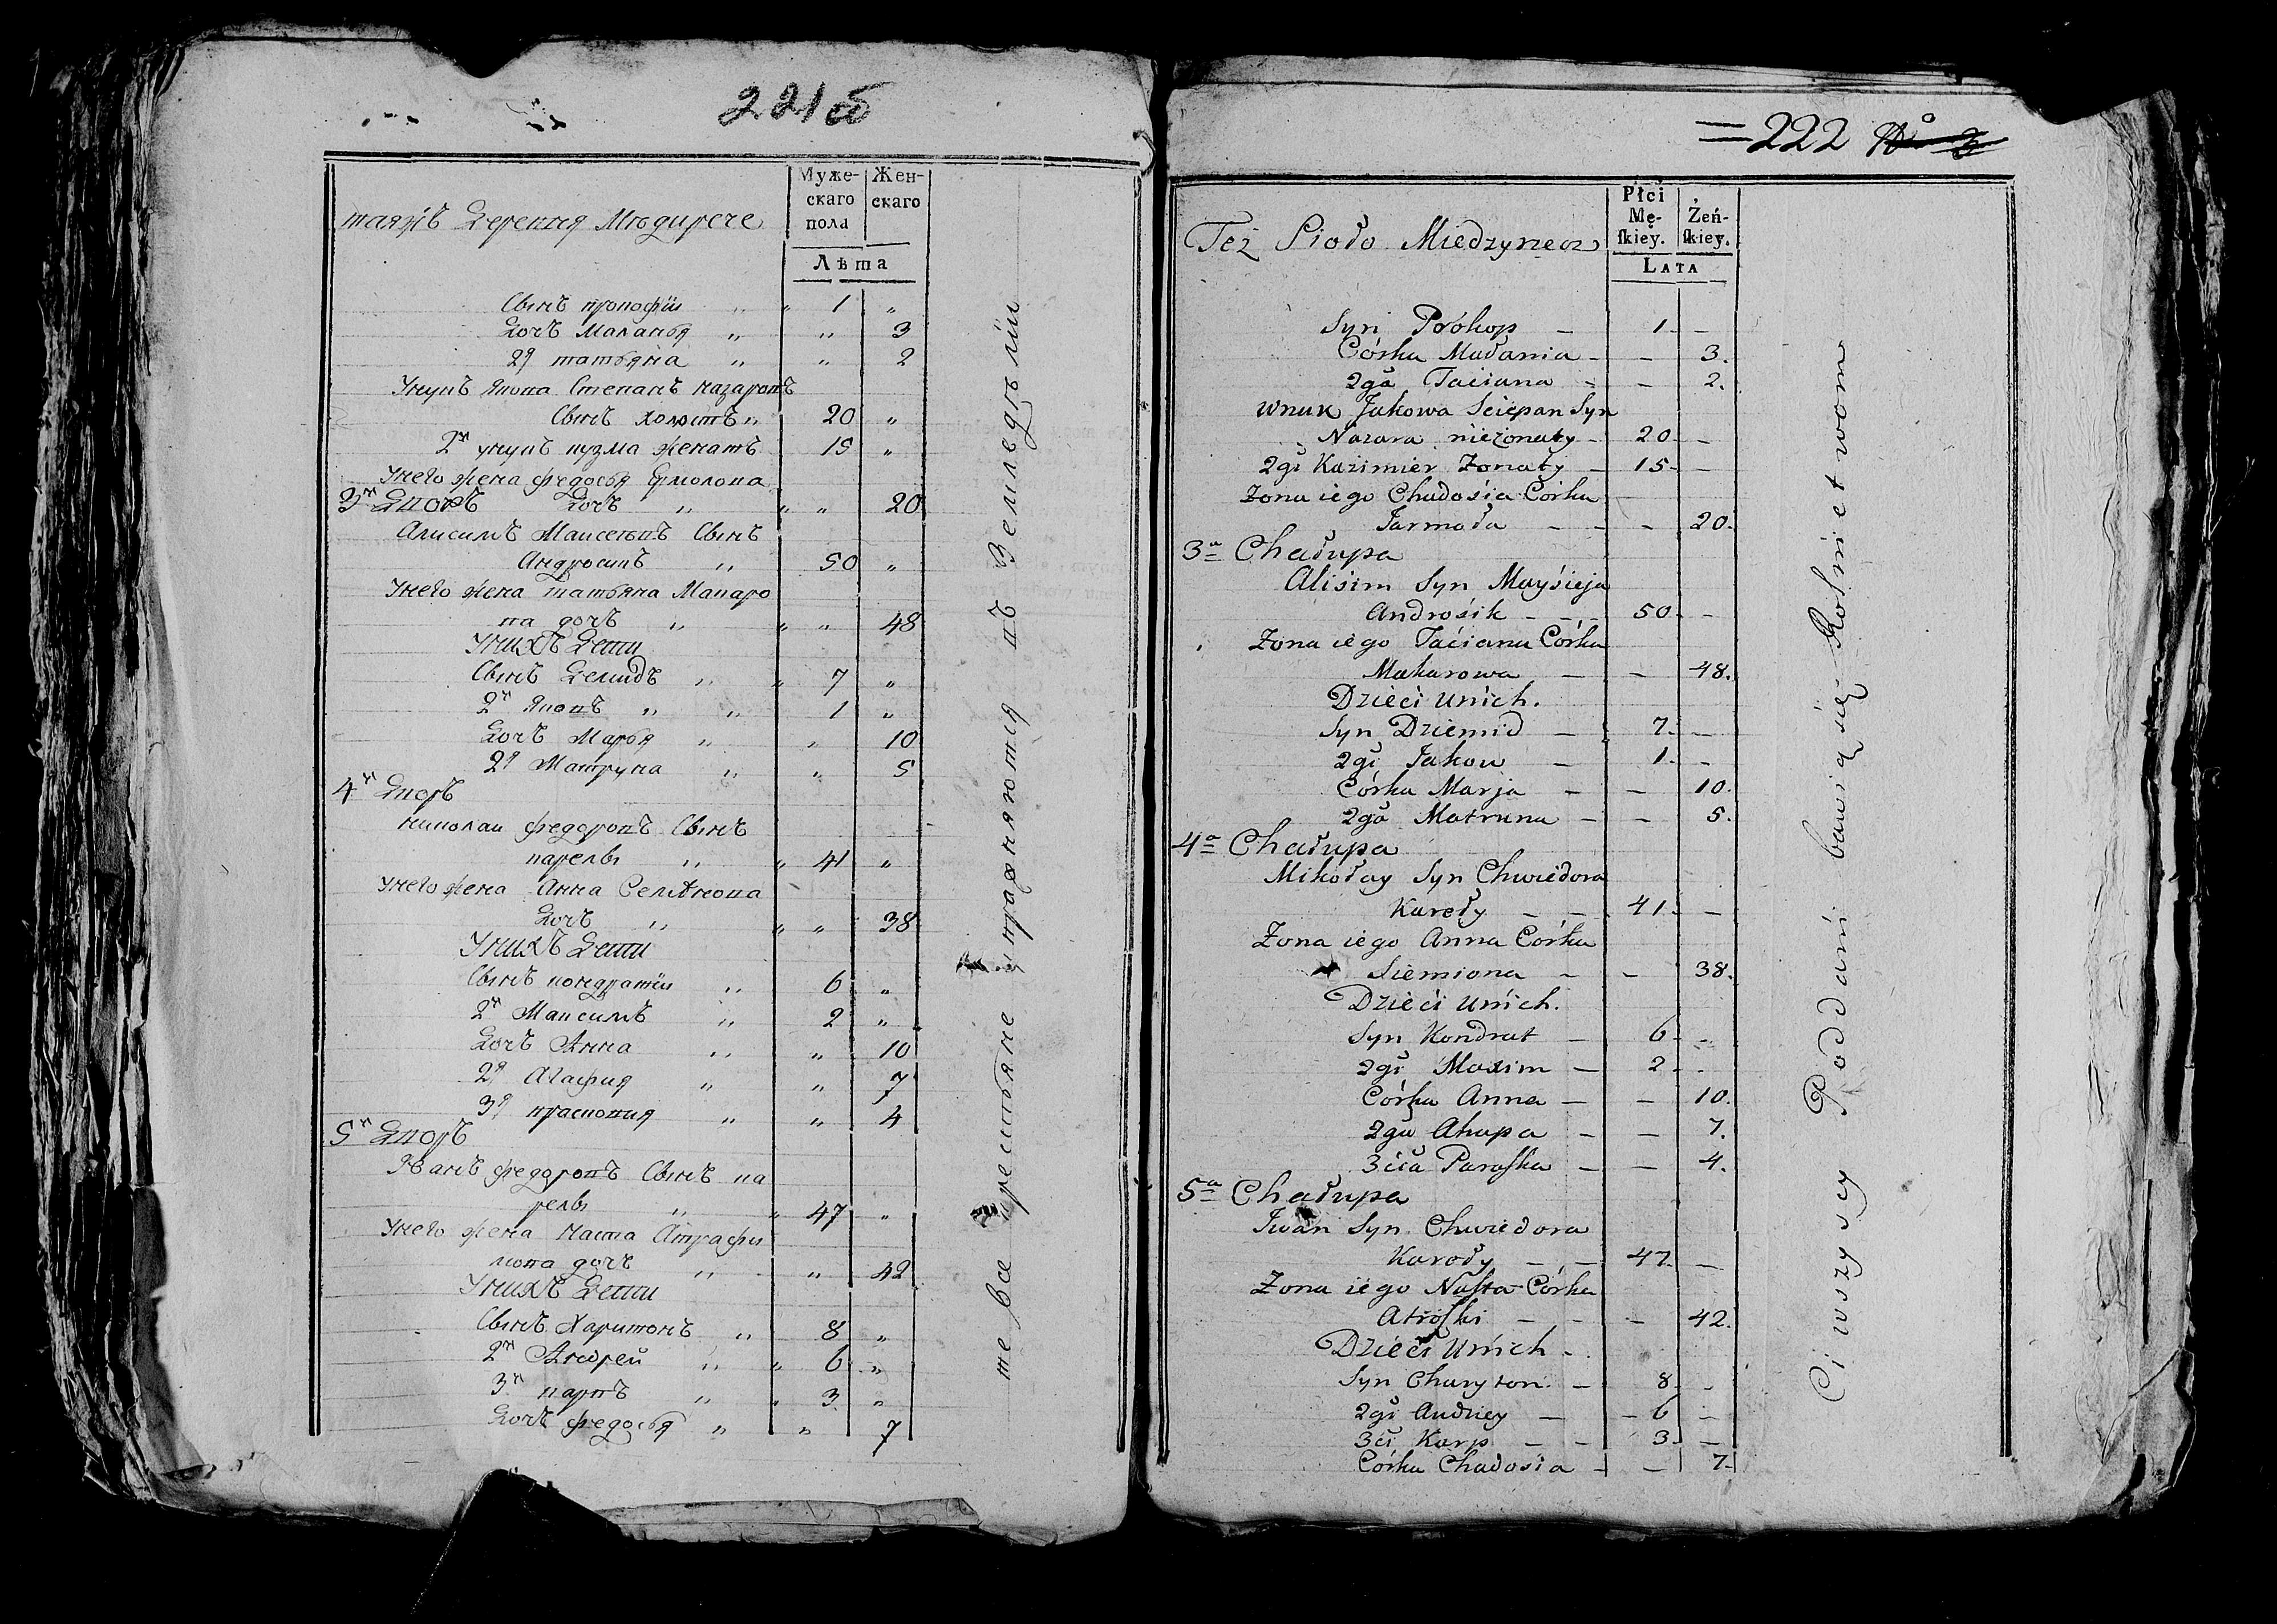 221 об
таяжъ Деревня Мѣдиречe
Муже-
скаго
пола
Жен-
скаго
Лѣта
Сынъ прокофiи " " 1 "
Дочь Маланья " " 3
2я татьяна " " 2
Унукъ Якова Степанъ назаровъ
Сынъ холостъ " 20 "
2й унукъ кузма женатъ 15 "
Унего жена федосья Ермолова
3й Дворъ Дочь " " " 20
Алисимъ Маисеевъ Сынъ
Андросикъ " 50 "
Унего жена татьяна Макаро
ва дочь " " " 48
Унихъ Дети
Сынъ Демидъ " " 7 "
2й Яковъ " " 1 "
Дочь Марья " " 10
2я Матруна " " 5
4й Дворъ
николаи федоровъ Сынъ
карелы " " 41 "
Унего жена Анна Семѣнова
Дочь " " " 38
Унихъ Дети
Сынъ кондратiи " 6 "
2й Максимъ " 2 "
Дочь Анна " " 10
2я Агафия " " 7
3я прасковия " " 4
5й Дворъ
Иванъ федоровъ Сынъ ка
релы " " 47 "
Унего жена наста Атрафи
мова дочь " " 42
Унихъ Дети
Сынъ Харитонъ " 8 "
2й Андрей " " 6 "
3й карпъ " " 3 "
Дочь федосья " " 7
те все крестьяне упражняются въ Земледѣлiи
=222 № 3
Też Sioło Miedzyrzecz
Płci
Mę-
ſkiey.
Żeń-
ſkiey.
LATA
Syn Prokop – 1 –
Córka Małania – – 3.
2ga Taciana – – 2.
Wnuk Jakowa Sciepan Syn
Nazara nieżonaty – 20 –
2gi Kazimier Żonaty – 15 –
Żona iego Chadosia Córka
Jarmoła – – – 20.
3a Chałupa
Alisim Syn Maysieja
Androsik – – – 50 –
Żona iego Taciana Córka
Makarowa – – 48.
Dzieci unich.
Syn Dziemid – 7 –
2gi Jakow – 1 –
Córka Marja – – 10.
2ga Matruna – – 5.
4a Chałupa
Mikołay Syn Chwiedora
Kareły – – 41 –
Żona iego Anna Córka
Siemiona – – 38.
Dzieci unich.
Syn Kondrat – 6 –
2gi Maxim – 2 –
Córka Anna – – 10.
2ga Ahapa – – 7.
3cia Paraſka – – 4.
5a Chałupa
Iwan Syn Chwiedora
Karoły – – 47 –
Żona iego Naſta Córka
Atroſki – – – 42.
Dzieci unich –
Syn Charyton – 8 –
2gi Andriey – – 6 –
3ci Karp – – 3 –
Córka Chadosia – – 7 –
Ci wszyscy Poddani bawią się Rolnietwom